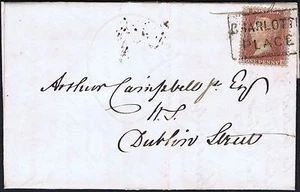 CHARLOTTE
PLACE
ONE PENNY
Arthur Campbell Jr. Esq
W.S.
Dublin Street